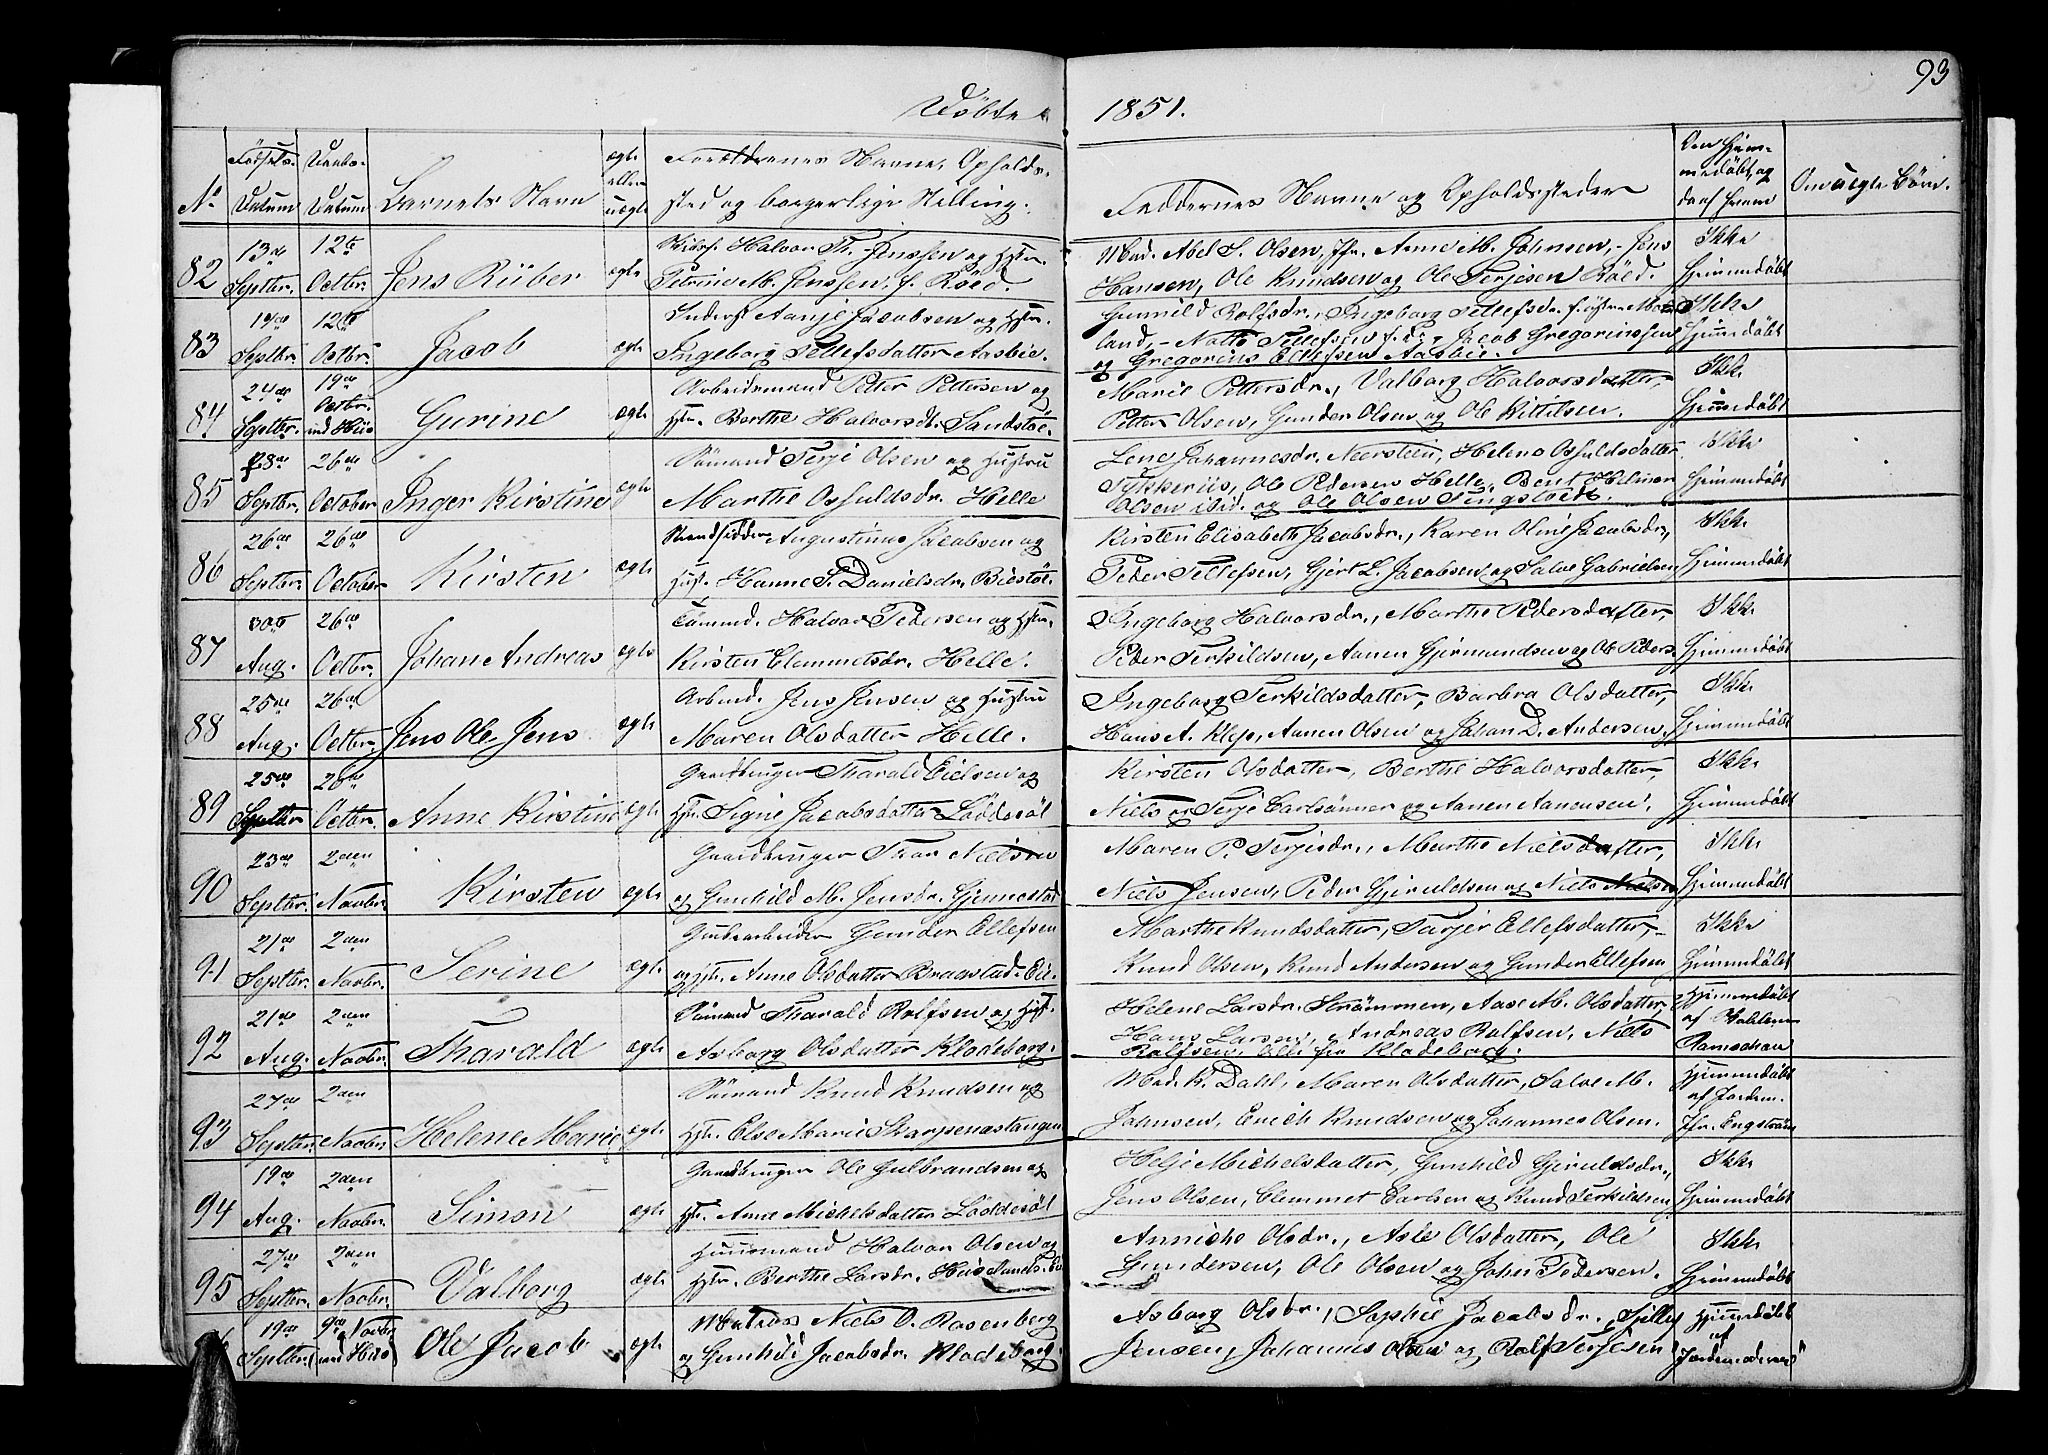 93
Döbte 1851.
No
Födsels-
Datum
Daabs-
Datum
Barnets Navn
ægte
eller
uægte
Forældrenes Navne, Opholds-
sted og borgerlige Stilling.
Faddernes Navne og Opholdssteder
Om Hjem-
medöbt, og
da af hvem
Om uægte Börn.
82 13de Septbr. 12te Octbr. Jens Riiber ægte
Halvor Th. Jenssen og Hstr.
Petrine M. Jenssen, f. Röed.
Mad. Abel S. Olsen, Jfr. Anne M. Johnsen, - Jens
Hansen, Ole Knudsen og Ole Terjesen Röed.
Ikke
Hjemmedöbt
83 14de Septbr. 12te Octbr. Jacob ægte
Inderst Aanje Jacobsen og Hstr.
Ingeborg Tellefsdatter Aasbie.
Gunnild Rolfsdr., Ingeborg Tellefsdr.
land, - Tellefsen, Jacob Gregoriussen
og Gregorius Ellefsen Aasbie.
Ikke
Hjemmedöbt
84 24de Septbr. 19de Octbr. ind Hiis Gurine ægte
Arbeidsmand Peter Pettersen og
Hstr. Berthe Halvorsdr. Sandstöe.
Marie Pettersdr., Valborg Halvorsdatter,
Petter Olsen, Gunder Olsen og Ole Kittilsen.
Ikke
Hjemmedöbt
85 28de Septbr. 26de October Inger Kirstine ægte
Sömand Terje Olsen og Hustru
Marthe Osfuldsdr. Helle
Lene Johannesdr. Neersteen, Helene Osfuldsdatter
Tykkeriis, Ole Pedersen Helle, Bent Helmer
Olsen ibid. og Ole Olsen Songstvedt.
Ikke
Hjemmedöbt
86 26de Septbr. 26de October Kirsten ægte
Strandsidder Augustinus Jacobsen og
Hust. Hanne S. Danielsdr. Biestöe.
Kirsten Elisabeth Jacobsdr., Karen Oline Jacobsdr.,
Peder Tellefsen, Gjert L. Jacobsen og Salve Gabrielsen
Ikke
Hjemmedöbt
87 30te Aug. 26de Octbr. Johan Andreas ægte
Tömmd. Halvor Pedersen og Hstr.
Kirsten Clemmetsdr. Helle.
Ingeborg Halvorsdr., Marthe Pedersdatter,
Peder Terkildsen, Aanen Gjermundsen og Ole Peders.
Ikke
Hjemmedöbt
88 25de Aug. 26de Octbr. Jens Ole Jens ægte
Arbmd. Jens Jensen og Hustru
Maren Olsdatter Helle.
Ingeborg Terkildsdatter, Barbra Olsdatter,
Hans A. Klep, Aanen Olsen og Johan D. Andersen,
Ikke
Hjemmedöbt
89 25de Septbr 26de Octbr. Anne Kirstine ægte
Gaardbruger Tharald Eielsen og
Hstr. Signe Jacobsdatter Löddesöl
Kirsten Olsdatter, Berthe Halvorsdatter,
Niels og Terje Carlsönner og Aanen Aanensen.
Ikke
Hjemmedöbt
90 23de Septbr. 2den Novbr. Kirsten ægte
Gaardbruger Thor Nielsen
og Gunhild M. Jensdr. Gjennestad
Maren P. Terjesdr., Marthe Nielsdatter,
Niels Jensen, Peder Gjeruldsen og Niels Nielsen
Ikke
Hjemmedöbt
91 21de Septbr. 2den Novbr. Serine ægte
Grubearbeider Gunder Ellefsen
og Hstr. Anne Olsdatter Braastad-Eie.
Marthe Knudsdatter, Torjer Ellefsdatter, -
Knud Olsen, Knud Andersen og Gunder Ellefsen
Ikke
Hjemmedöbt
92 21de Aug. 2den Novbr. Tharald ægte
Sömand Tharald Rolfsen og Hust.
Asborg Olsdatter Klodeborg.
Helene Larsdr. Strömmen, Aase M. Olsdatter,
Hans Larsen, Andreas Rolfsen, Niels
Rolfsen, Alle fra Klodeborg.
Hjemmedöbt
af
93 27de Septbr. 2den Novbr. Helene Marie ægte
Sömand Knud Knudsen og
Hstr. Else Marie Skarpenestangen
Mad. K. Dahl, Maren Olsdatter, Salve M.
Johnsen, Erich Knudsen og Johannes Olsen.
Hjemmedöbt
af Jordem.
Jfr. Engström
94 19de Aug. 2den Novbr. Simon ægte
Gaardbruger Ole Gulbrandsen og
Hstr. Anne Michelsdatter Löddesöl
Helje Michelsdatter, Gunhild Gjeruldsdr.,
Jens Olsen, Clemmet Carlsen og Knud Terkildsen
Ikke
Hjemmedöbt
95 27de Septbr. 2den Novbr. Valborg ægte
Huusmand Halvor Olsen og
Hstr. Berthe Larsdr.
Anniche Olsdr., Asle Olsdatter, Ole
Gundersen, Ole Olsen og John Pedersen.
Ikke
Hjemmedöbt
19de Septbr. 9de Novbr (ind Hiis) Ole Jacob ægte
Matros Niels O. Rosenberg
og Gunhild Jacobsdr. Klodeborg.
Asborg Olsdr., Sophie Jacobsdr., Tjilly
Jensen, Johannes Olsen og Rolf Terjesen
Hjemmedöbt
af
Jordemoderen